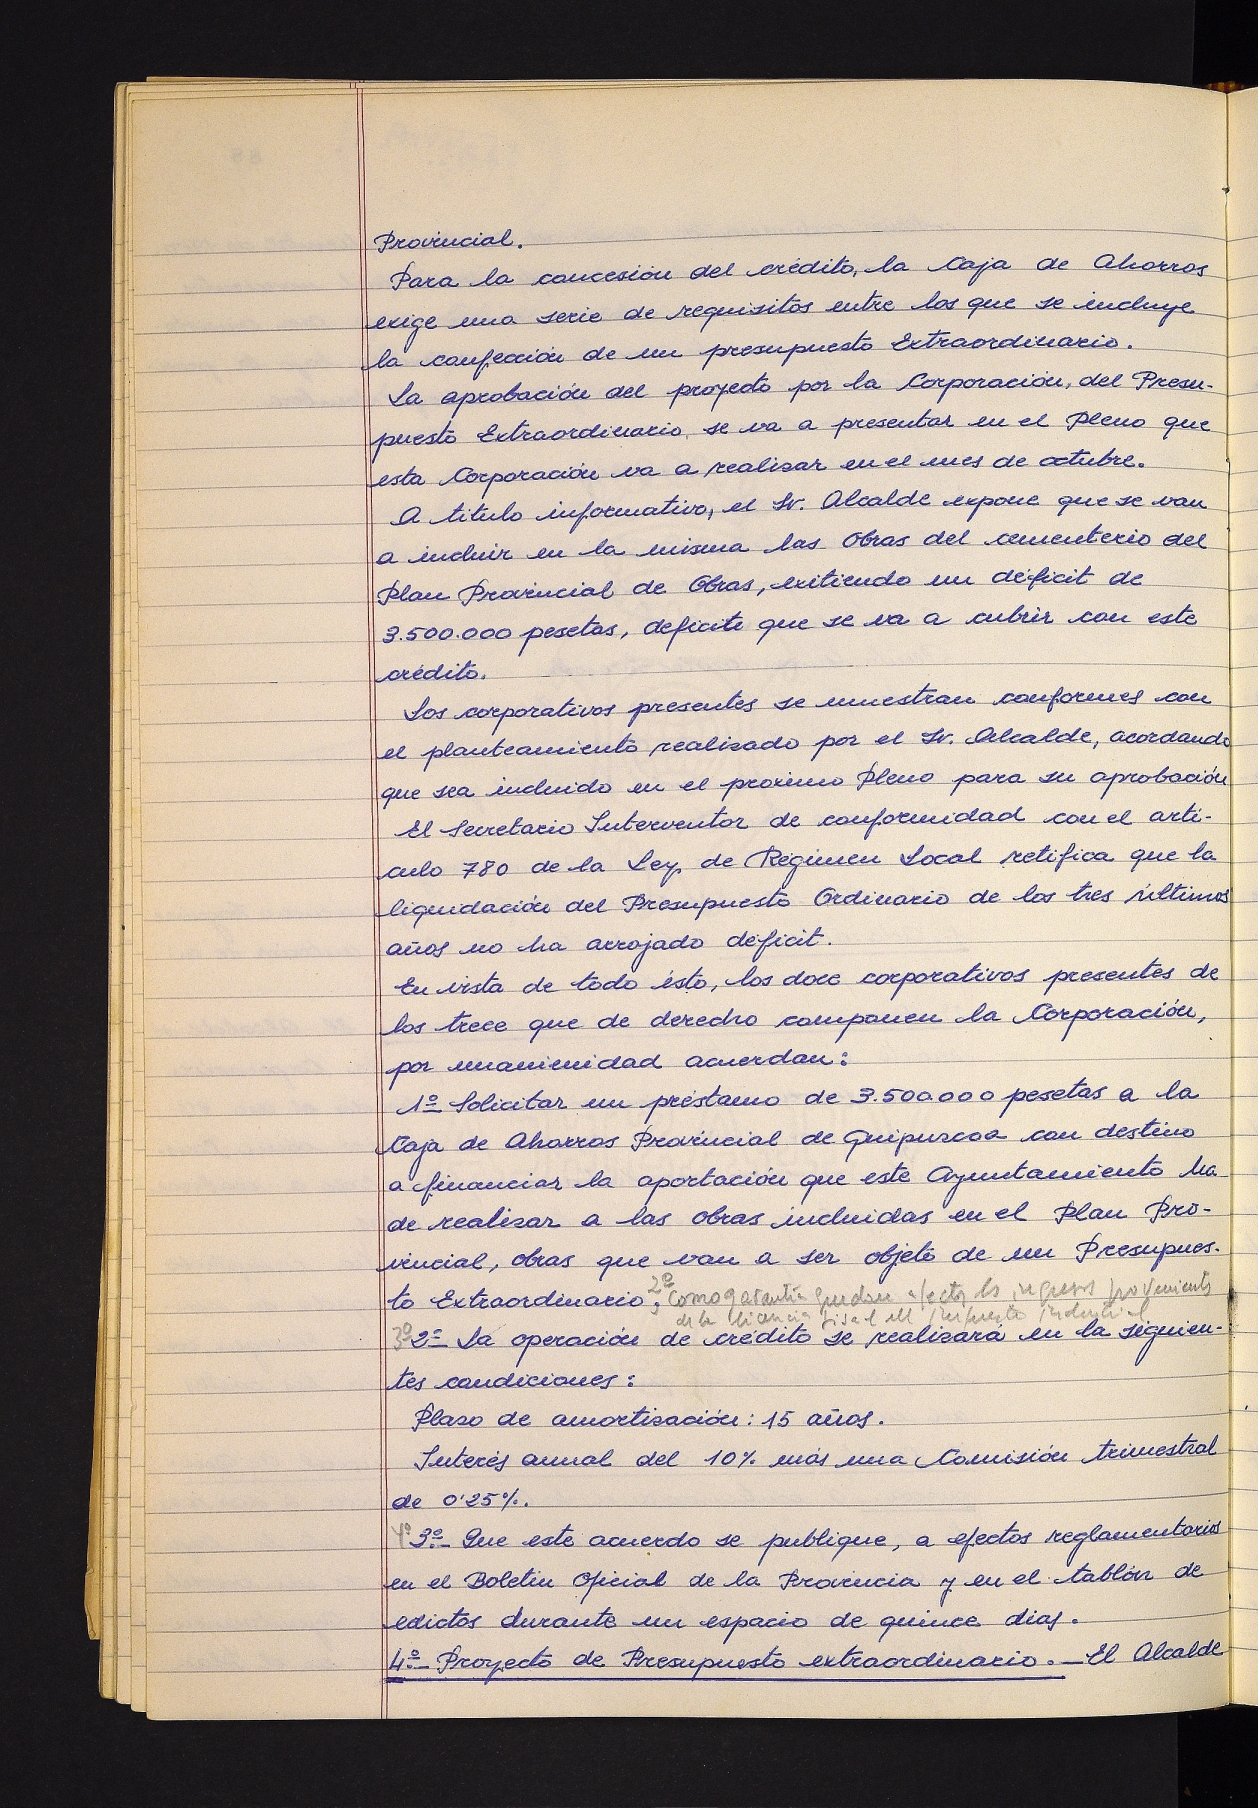 Provincial.
Para la concesión del crédito, la Caja de Ahorros
exige una serie de requisitos entre los que se incluye
la confección de un presupuesto Extraordinario.
La aprobación del proyecto por la Corporación, del Presu-
puesto Extraordinario, se va a presentar en el Pleno que
esta Corporación va a realizar en el mes de octubre.
A titulo informativo, el Sr. Alcalde expone que se van
a incluir en la misma las Obras del cementerio del
Plan Provincial de Obras, exitiendo un déficit de
3.500.000 pesetas, deficite que se va a cubrir con este
crédito.
Los corporativos presentes se muestran conformes con
el planteamiento realizado por el Sr. Alcalde, acordando
que sea incluido en el proximo Pleno para su aprobación
El Secretario Interventor de conformidad con el artí-
culo 780 de la Ley de Régimen Local retifica que la
liquidación del Presupuesto Ordinario de los tres últimos
años no ha arrojado déficit.
En vista de todo ésto, los doce corporativos presentes de
los trece que de derecho componen la Corporación,
por unanimidad acuerdan:
1º Solicitar un préstamo de 3.500.000 pesetas a la
Caja de Ahorros Provincial de Guipuzcoa con destino
a financiar la aportación que este Ayuntamiento ha
de realizar a las obras incluidas en el Plan Pro-
vincial, obras que van a ser objeto de un Presupues-
to Extraordinario; 2º Como garantia quedan afectos los ingresos provenientes
de la licencia fiscal del impuesto industrial
3º 2º La operación de crédito se realizará en la siguien-
tes condiciones:
Plazo de amortización: 15 años.
Interés annal del 10% más una Comisión trimestral
de 0'25%.
4º 3º.- Que este acuerdo se publique, a efectos reglamentarios
en el Boletin Oficial de la Provincia y en el tablón de
edictos durante un espacio de quince dias.
4º.- Proyecto de Presupuesto extraordinario.- El Alcalde